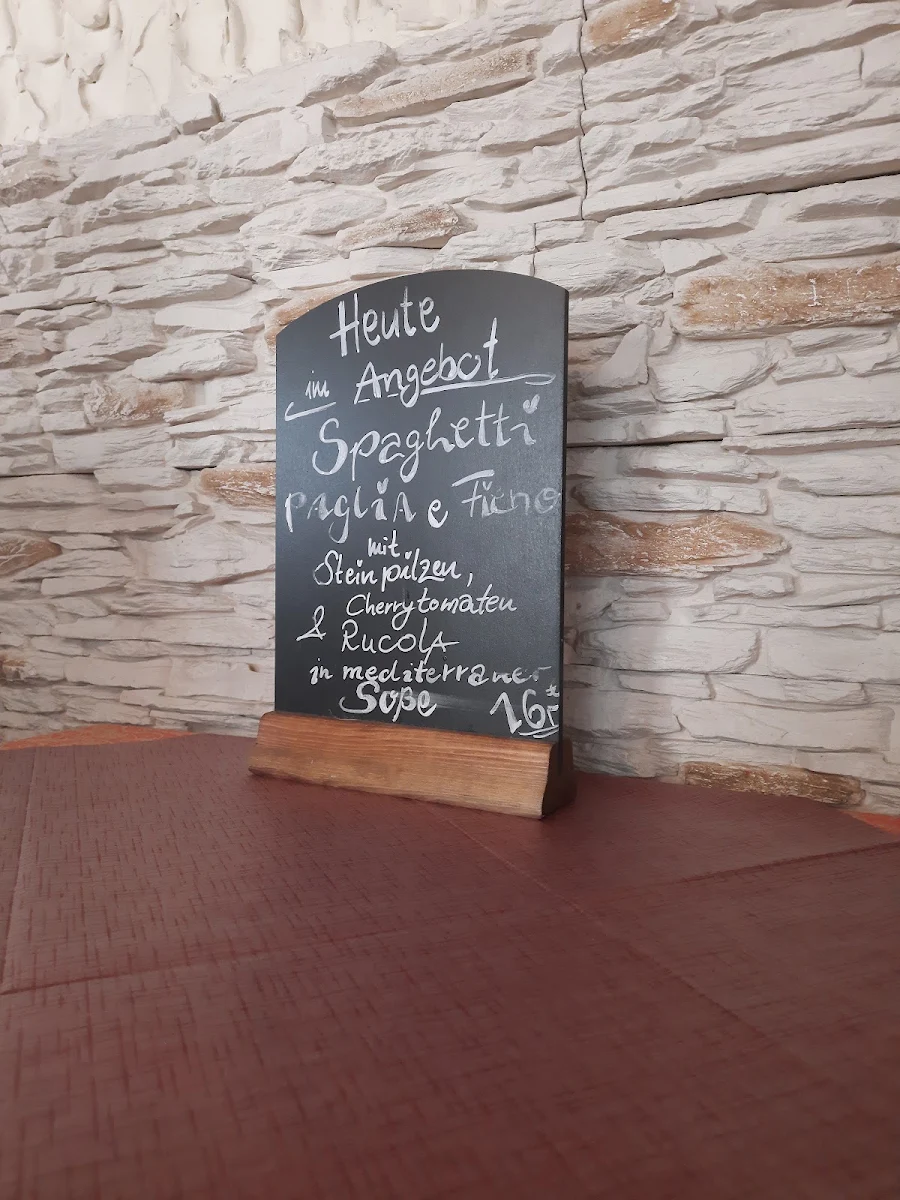 Heute
im Angebot
Spaghetti
paglia e Fieno
mit
Steinpilzen,
Cherrytomaten
& Rucola
in mediterraner
Soße 16